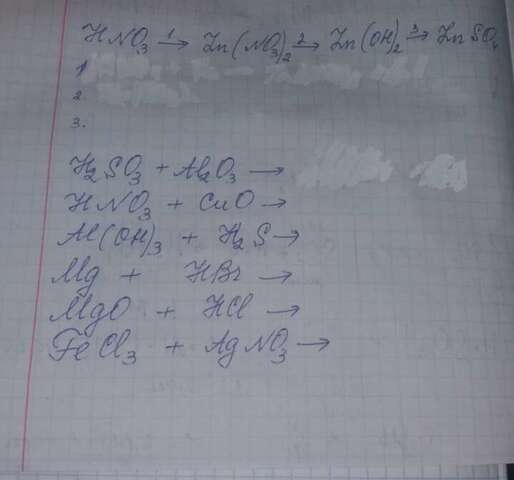 HNO₃ →¹ Zn(NO₃)₂ →² Zn(OH)₂ →³ ZnSO₄
1
2.
3.
H₂SO₃ + Al₂O₃ →
HNO₃ + CuO →
Al(OH)₃ + H₂S →
Mg + HBr →
MgO + HCl →
FeCl₃ + AgNO₃ →